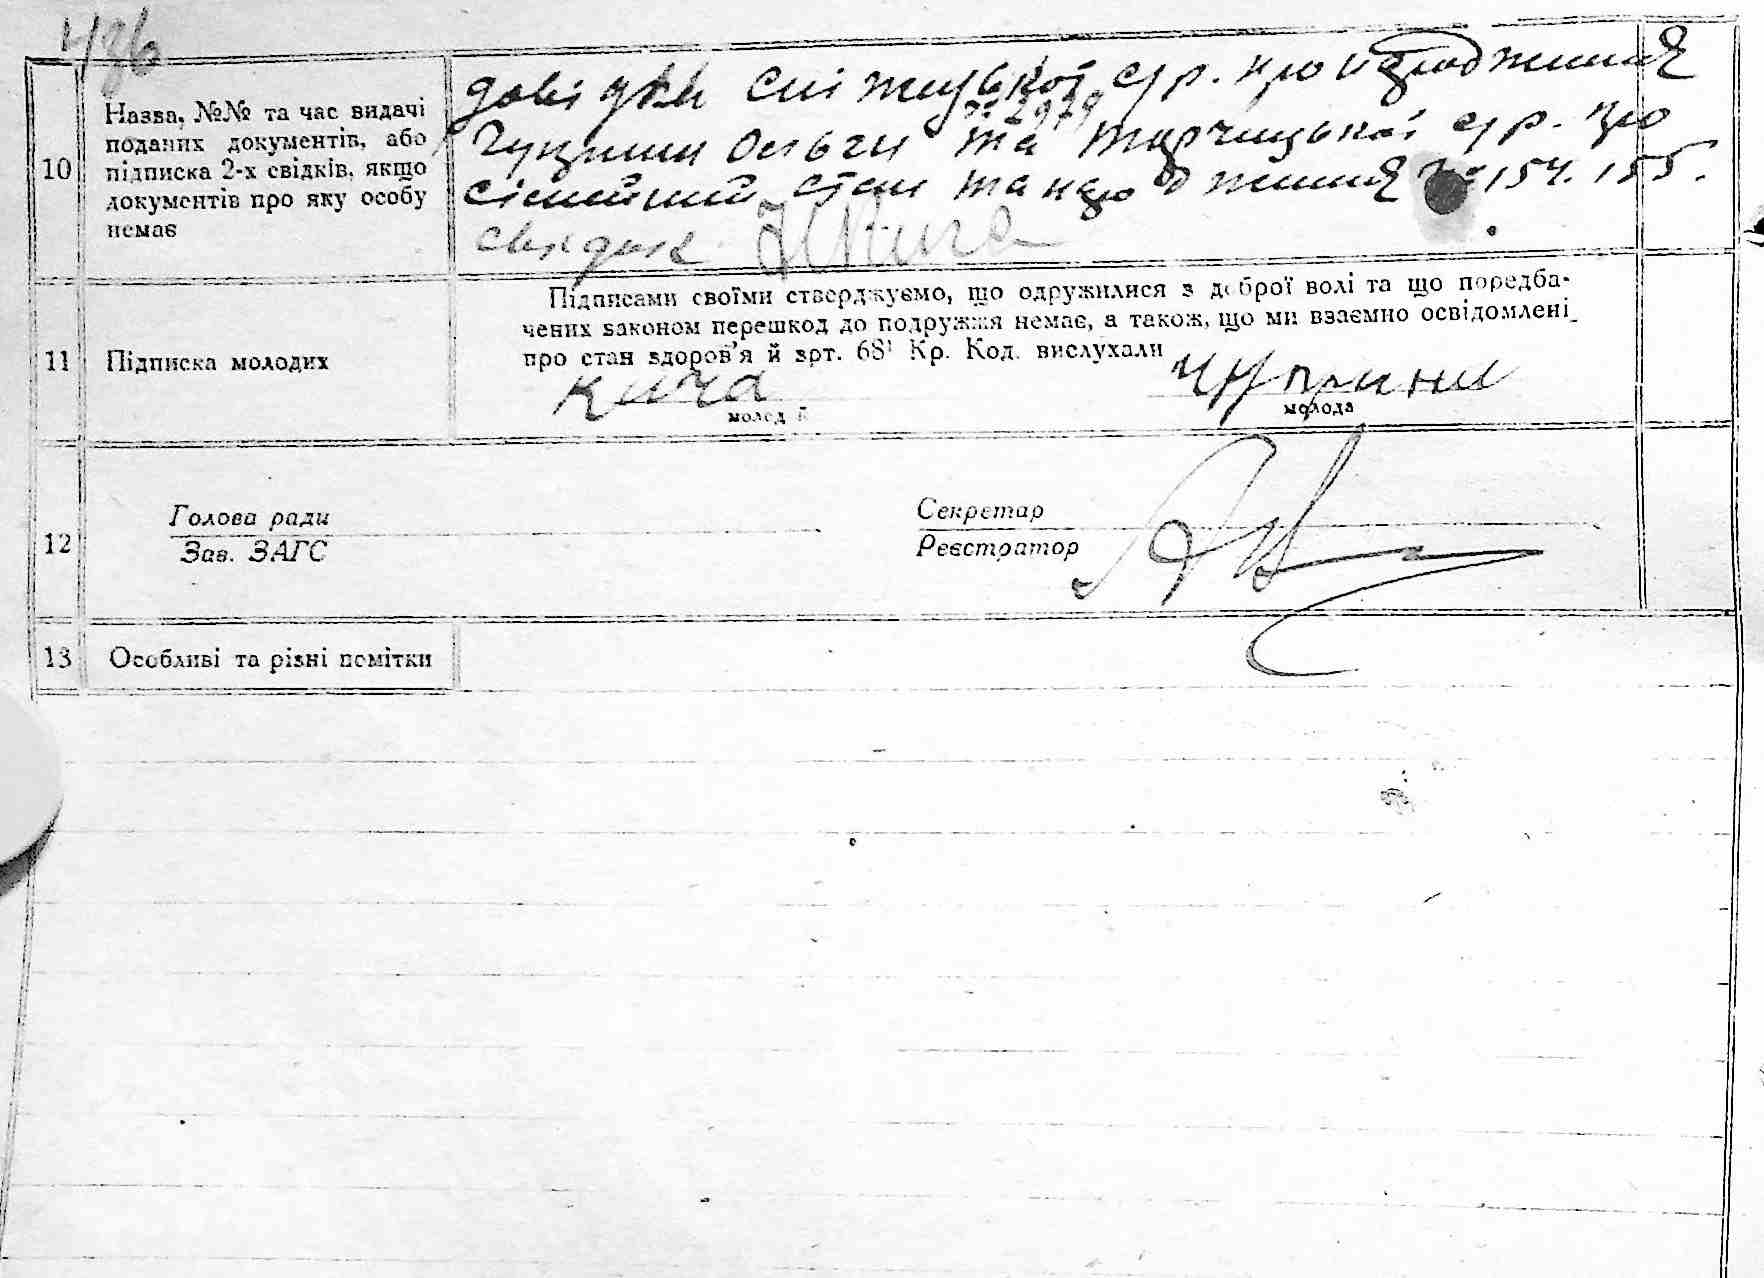 486
10
Назва, №№ та час видачі
поданих документів, або
підписка 2-х свідків, якщо
документів про яку особу
немає
довідки с/р. про народження
№ 2979
Ольги та с/р. про
сімейний стан та народження № 154. 155.
свидок
11
Підписка молодих
Підписами своїми стверджуємо, що одружилися з доброї волі та що поредба-
чених законом перешкод до подружжя немає, а також, що ми взаємно освідомлені
про стан здоров'я й зрт. 68¹ Кр. Код. вислухали
Кича
молодий
молода
12
Голова ради
Зав. ЗАГС
Секретар
Реєстратор
13
Особливі та різні помітки